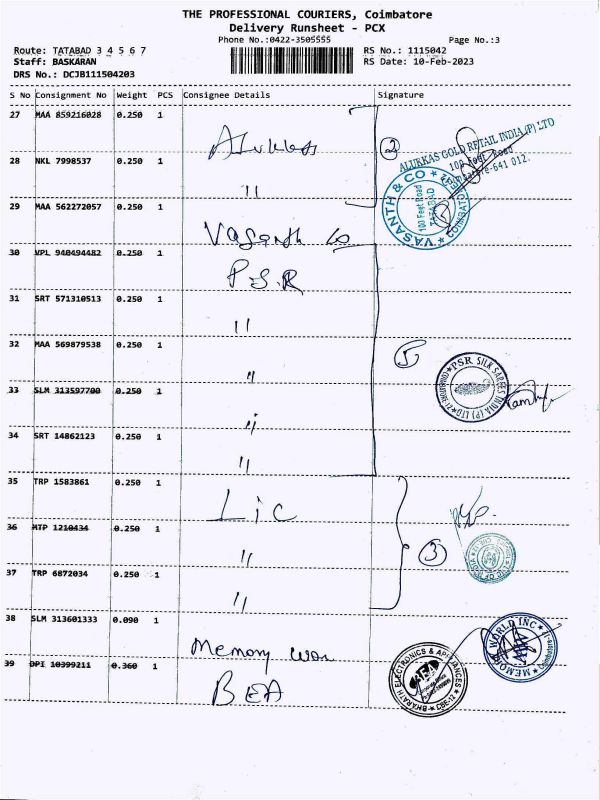 THE PROFESSIONAL COURIERS, Coimbatore
Delivery Runsheet - PCX
Phone No.:0422-3505555
Page No.:3
Route: TATABAD 3 4 5 6 7
RS No.: 1115042
Staff: BASKARAN
RS Date: 10-Feb-2023
DRS No.: DCJB111504203
S No Consignment No Weight PCS Consignee Details Signature
27 MAA 859216028 0.250 1 Alukkas
2
ALUKKAS GOLD RETAIL INDIA (P) LTD
100 Feet Road
Coimbatore-641 012.
28 NKL 7998537 0.250 1 "
29 MAA 562272057 0.250 1 Vasanth Co
VASANTH & CO
100 Feet Road
TATABAD
COIMBATORE-12
30 VPL 940494482 0.250 1 P.S.R
31 SRT 571310513 0.250 1 "
32 MAA 569879538 0.250 1 "
5
PSR SILK SAREES INDIA (P) LTD COIMBATORE-12
33 SLM 313597700 0.250 1 "
34 SRT 14862123 0.250 1 "
35 TRP 1583861 0.250 1 Lic
36 MTP 1210434 0.250 1 "
3
37 TRP 6872034 0.250 1 "
38 SLM 313601333 0.090 1 Memory
MEMORY WORLD INC
39 OPI 10399211 0.360 1 BEA
BHARATH ELECTRONICS & APPLIANCES
BEA
CBE-12